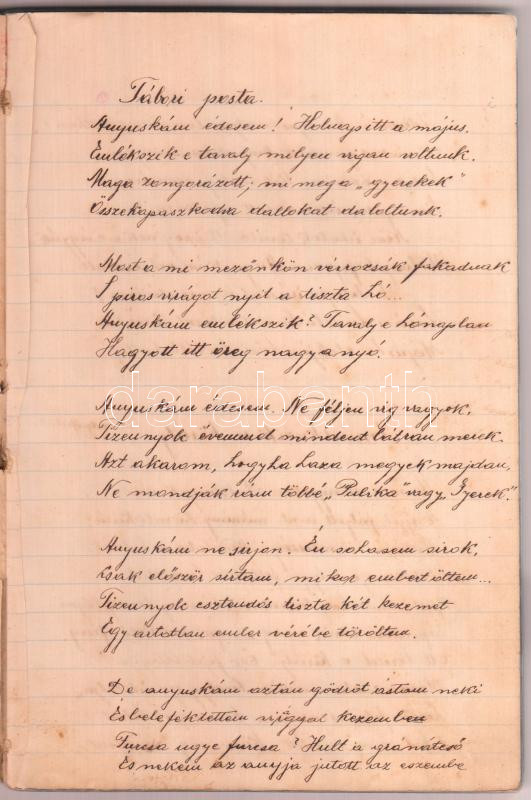 Tábori posta.
Anyuskám édesem! Holnap itt a május.
Emlékszik e tavaly milyen vigan voltunk.
Maga zongorázott, mi meg a „gyerekek"
Összekapaszkodva dallokat daloltunk.
Most a mi mezőnkön vérrozsák fakadnak
S piros virágot nyit a tiszta hó...
Anyuskám emlékszik? Tavaly e hónapban
Hagyott itt öreg nagyanyó.
Anyuskám édesem. Ne féljen vig vagyok,
Tizennyolc évemmel mindent bátran merek.
Azt akarom, hogyha haza megyek majdan,
Ne mondják rám többé „Pulika" vagy „Gyerek".
Anyuskám ne sirjon. Én sohasem sirok,
Csak először sírtam, mikor embert öltem...
Tizennyolc esztendős tiszta két kezemet
Egy ártatlan ember vérébe töröltem.
De anyuskám aztán gödröt ástam neki
És belefektettem virággal kezemben
Furcsa ugye furcsa? Hullt a gránáteső
És nekem az anyja jutott az eszembe
darabanth